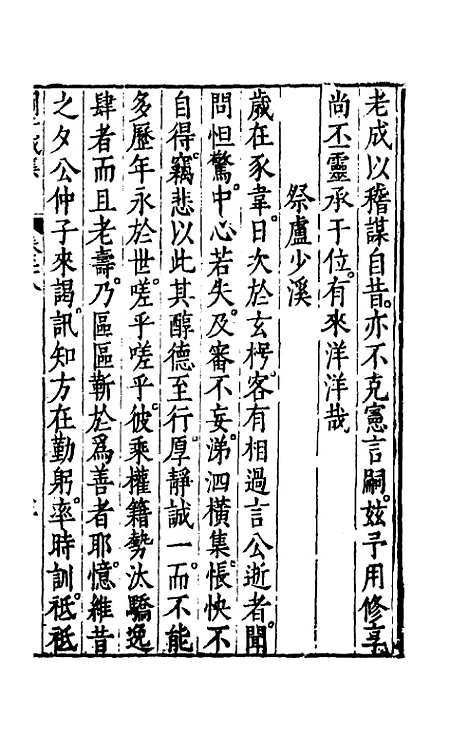 老成以稽謀自昔亦不克憲言嗣兹予用修享
尚丕靈承于位有來洋洋哉
祭盧少溪
歲在豕韋日次於玄枵客有相過言公逝者聞
問怛驚中心若失及審不妄涕泗橫集悵怏不
自得竊悲以此其醇德至行厚靜誠一而不能
多歷年永於世嗟乎嗟乎彼乘權籍勢汰驕逸
肆者而且老壽乃區區蘄於爲善者耶憶維昔
之夕公仲子來謁訊知方在勤躬率時訓祗祗